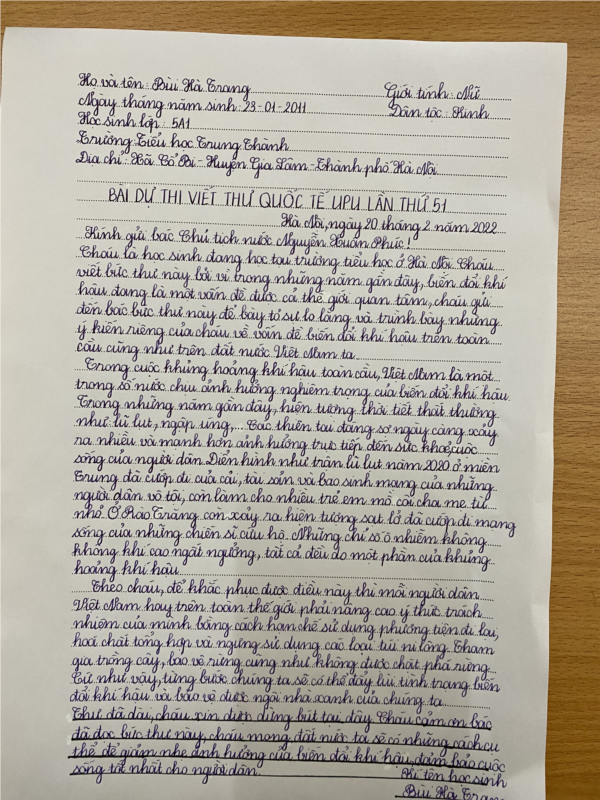 Họ và tên: Bùi Hà Trang Giới tính: Nữ
Ngày tháng năm sinh: 23-01-2011 Dân tộc: Kinh
Học sinh lớp: 5A1
Trường Tiểu học Trung Thành
Địa chỉ: Xã Cổ Bi - Huyện Gia Lâm - Thành phố Hà Nội
BÀI DỰ THI VIẾT THƯ QUỐC TẾ UPU LẦN THỨ 51
Hà Nội, ngày 20 tháng 2 năm 2022
Kính gửi bác Chủ tịch nước Nguyễn Xuân Phúc!
Cháu là học sinh đang học tại trường tiểu học ở Hà Nội. Cháu
viết bức thư này bởi vì trong những năm gần đây, biến đổi khí
hậu đang là một vấn đề được cả thế giới quan tâm, cháu gửi
đến bác bức thư này để bày tỏ sự lo lắng và trình bày những
ý kiến riêng của cháu về vấn đề biến đổi khí hậu trên toàn
cầu cũng như trên đất nước Việt Nam ta.
Trong cuộc khủng hoảng khí hậu toàn cầu, Việt Nam là một
trong số nước chịu ảnh hưởng nghiêm trọng của biến đổi khí hậu.
Trong những năm gần đây, hiện tượng thời tiết thất thường
như lũ lụt, ngập úng,... Các thiên tai đáng sợ ngày càng xảy
ra nhiều và mạnh hơn ảnh hưởng trực tiếp đến sức khoẻ, cuộc
sống của người dân. Điển hình như trận lũ lụt năm 2020 ở miền
Trung đã cướp đi của cải, tài sản và bao sinh mạng của những
người dân vô tội, còn làm cho nhiều trẻ em mồ côi cha mẹ từ
nhỏ. Ở Rào Trăng còn xảy ra hiện tượng sạt lở đã cướp đi mạng
sống của những chiến sĩ cứu hộ. Những chỉ số ô nhiễm không
không khí cao ngất ngưởng, tất cả đều do một phần của khủng
hoảng khí hậu.
Theo cháu, để khắc phục được điều này thì mỗi người dân
Việt Nam hay trên toàn thế giới phải nâng cao ý thức trách
nhiệm của mình bằng cách hạn chế sử dụng phương tiện đi lại,
hoá chất tổng hợp và ngừng sử dụng các loại túi ni lông. Tham
gia trồng cây, bảo vệ rừng cũng như không được chặt phá rừng.
Cứ như vậy, từng bước chúng ta sẽ có thể đẩy lùi tình trạng biến
đổi khí hậu và bảo vệ được ngôi nhà xanh của chúng ta.
Thư đã dài, cháu xin được dừng bút tại đây. Cháu cảm ơn bác
đã đọc bức thư này, cháu mong đất nước ta sẽ có những cách cụ
thể để giảm nhẹ ảnh hưởng của biến đổi khí hậu, đảm bảo cuộc
sống tốt nhất cho người dân. Kí tên học sinh
Bùi Hà Trang